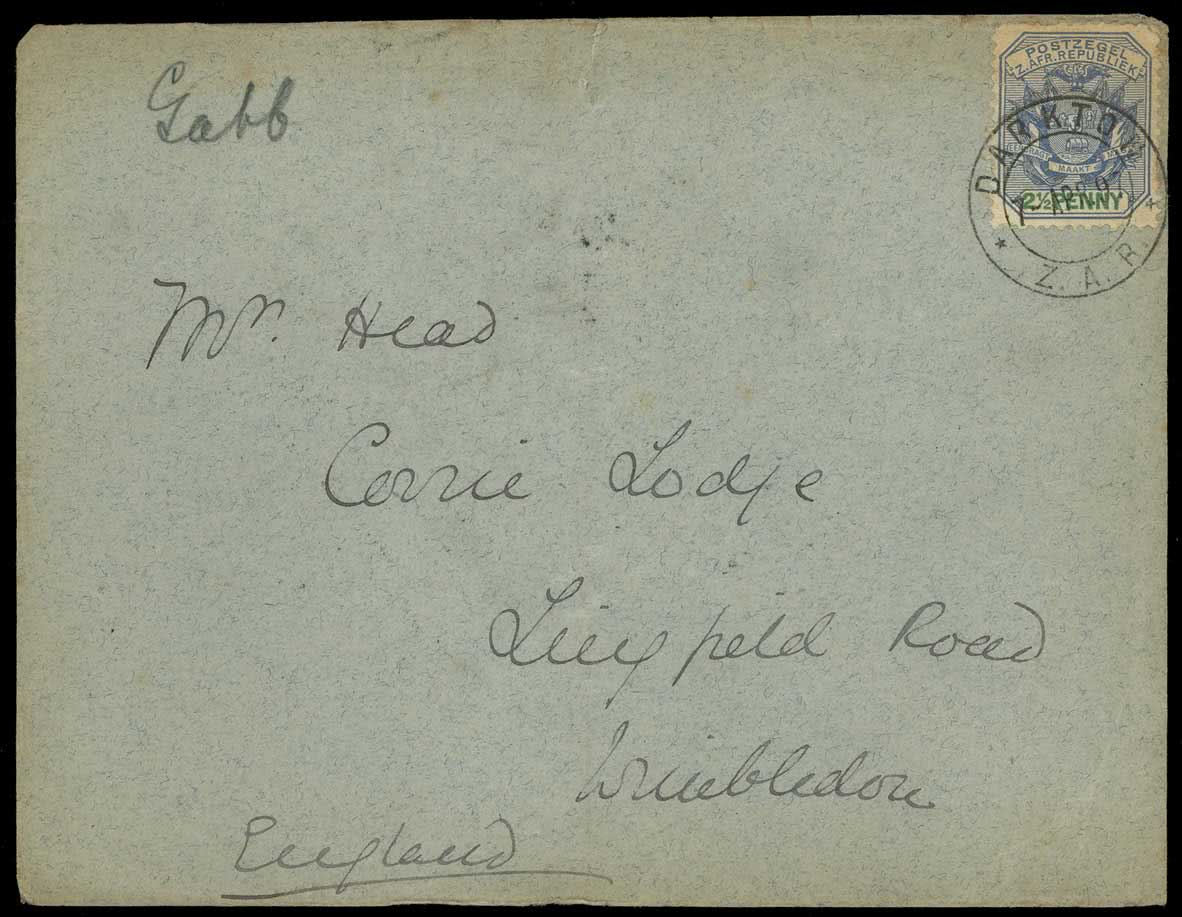 Gabb
POSTZEGEL
Z. AFR. REPUBLIEK
EENDRAGT MAAKT
2½ PENNY
DARKTOWN
7 - APR 9
Z. A. R.
Mr. Head
Corrie Lodge
Lingfield Road
Wimbledon
England